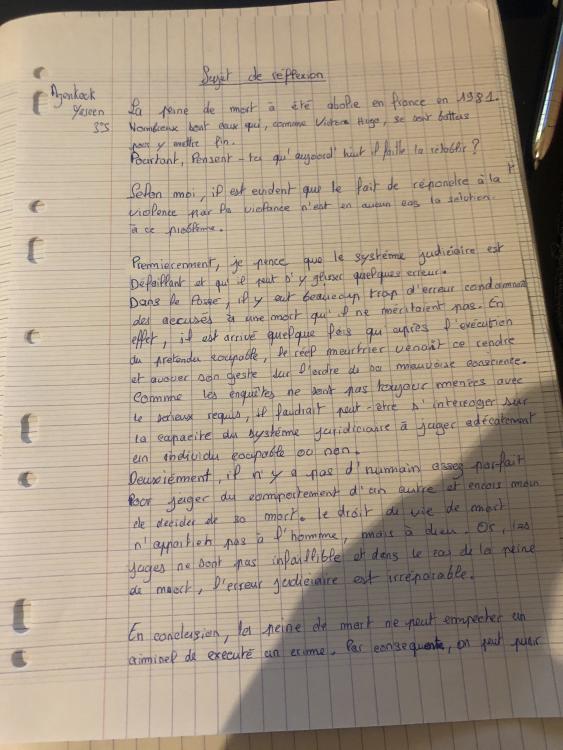 Sujet de réflexion
Agenkock
Yassen
3°5
La peine de mort à été abolie en france en 1981.
Nombreux sont ceux qui, comme Victore Hugo, se sont battus
pour y mettre fin.
Pourtant, Pensent-tu qu'aujourd'huit il faille la retablir ?
Selon moi, il est evident que le fait de répondre à la
violence par la violance n'est en aucun cas la solution.
à ce problème.
Premièrement, je pence que le systéme judiciaire est
Défaillant et qu'il peut s'y glisser quelques erreur.
Dans le Passé, il y eut beaucoup trop d'erreur condamnant
des accusés à une mort qu'il ne méritaient pas. En
effet, il est arrivé quelque fois qu'apres l'exécution
du pretendu coupable, le réel meurtrier venait ce rendre
et avouer son geste sur l'ordre de sa mauvaise consience.
Comme les enquêtes ne sont pas toujour menées avec
le serieux requis, il faudrait peut-être s'interoger sur
la capacité du systéme juridiciaire à juger adécatement
un individu coupable ou non.
Deuxiément, il n'y a pas d'humain assez parfait
Pour juger du comportement d'un autre et encors moin
de decider de sa mort. le droit de vie de mort
n'appartien pas à l'homme, mais à dieu. Or, les
juges ne sont pas infaillible et dans le cas de la peine
de mort, l'erreur judiciaire est irréparable.
En conclusion, la peine de mort ne peut empecher un
criminel de executé un crime. Par consequente, on peut